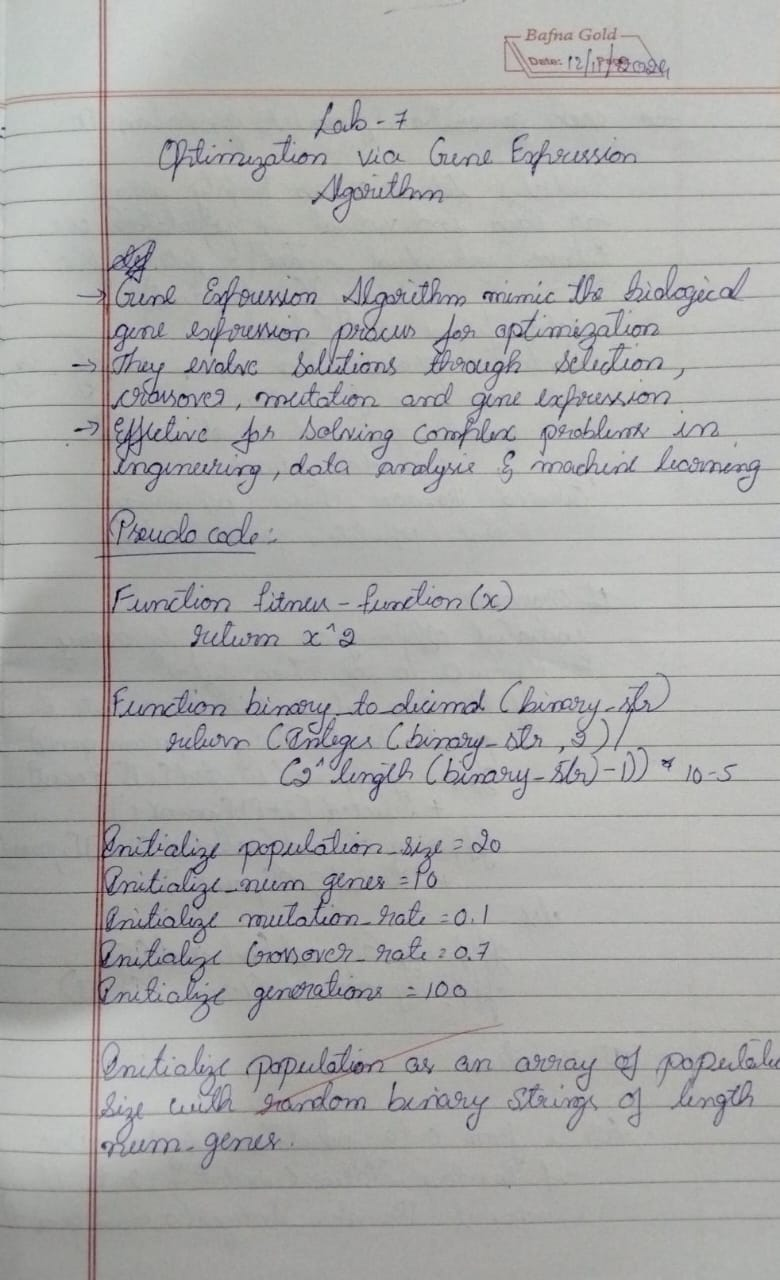 Bafna Gold
Date: 12/11/2024
Lab - 7
Optimization via Gene Expression
Algorithm
→ Gene Expression Algorithm mimic the biological
gene expression process for optimization
→ They evolve solutions through selection,
crossover, mutation and gene expression
→ Effective for solving complex problems in
engineering, data analysis & machine learning
Pseudo code:
Function fitness-function (x)
return x^2
Function binary_to_decimal (binary_str)
return (Integer (binary_str, 2) /
(2^length (binary_str) - 1)) * 10-5
Initialize population_size = 20
Initialize_num genes = 10
Initialize mutation_rate = 0.1
Initialize Crossover_rate = 0.7
Initialize generations = 100
Initialize population as an array of populatio
size with random binary strings of length
num_genes.